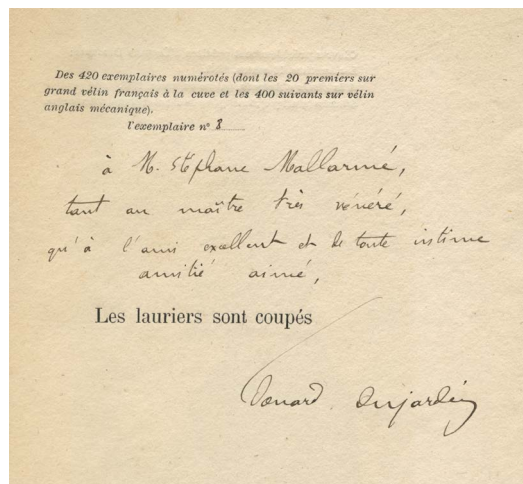 Des 420 exemplaires numérotés (dont les 20 premiers sur
grand vélin français à la cuve et les 400 suivants sur vélin
anglais mécanique).
l'exemplaire nº 8
à M. Stéphane Mallarmé,
tant au maître très vénéré,
qu'à l'ami excellent et de toute intime
amitié aimé,
Les lauriers sont coupés
Edouard Dujardin